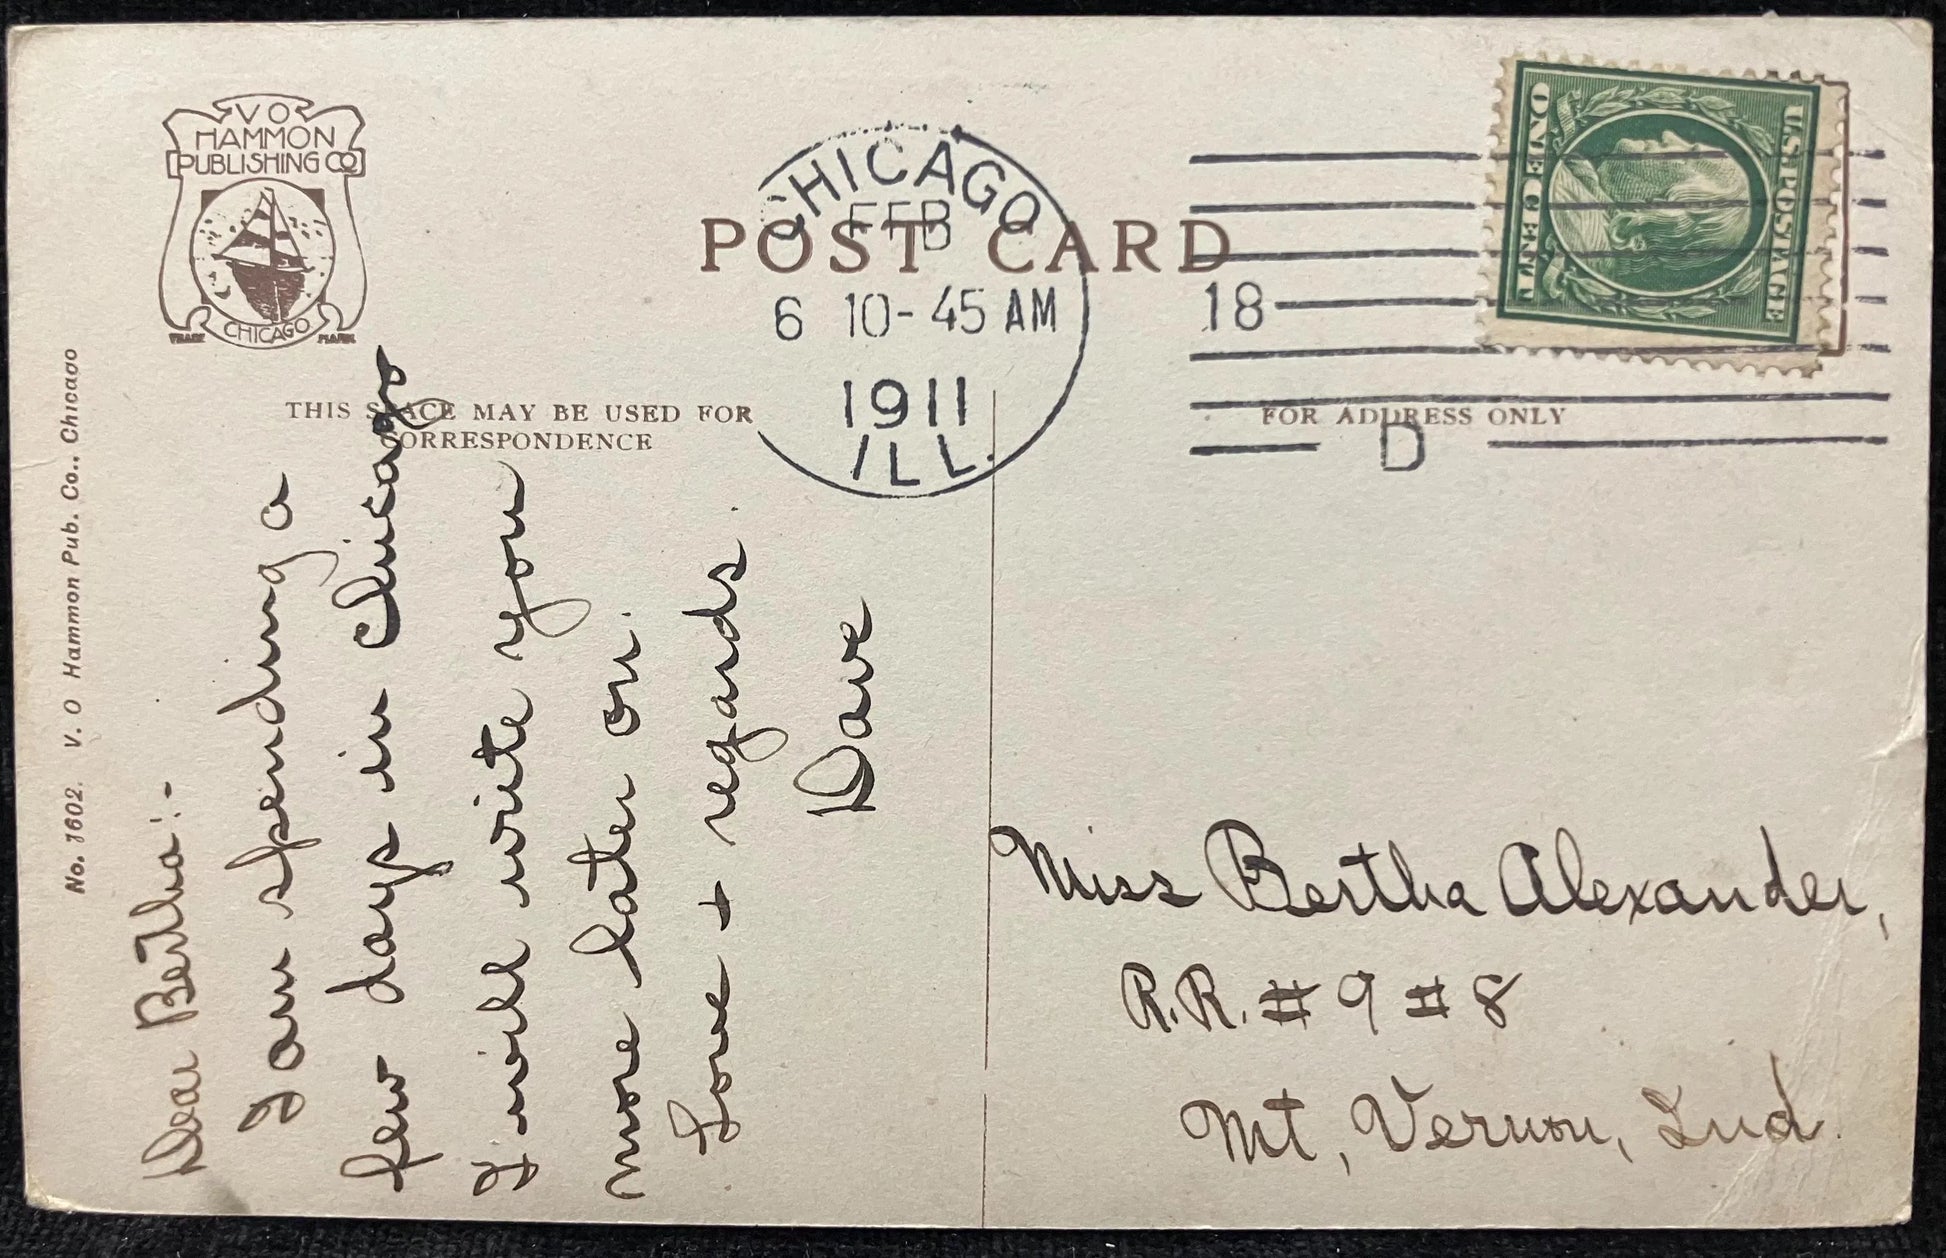 VO
HAMMON
PUBLISHING CO
CHICAGO
TRADE MARK
No. 1602. V. O Hammon Pub. Co., Chicago
POST CARD
THIS SPACE MAY BE USED FOR
CORRESPONDENCE
FOR ADDRESS ONLY
CHICAGO
FEB
6 10-45 AM
1911
ILL.
18
D
U.S. POSTAGE
ONE CENT
Dear Bertha:-
I am spending a
few days in Chicago
I will write you
more later on.
Love + regards.
Dave
Miss Bertha Alexander,
R.R. # 9 # 8
Mt, Vernon, Ind.